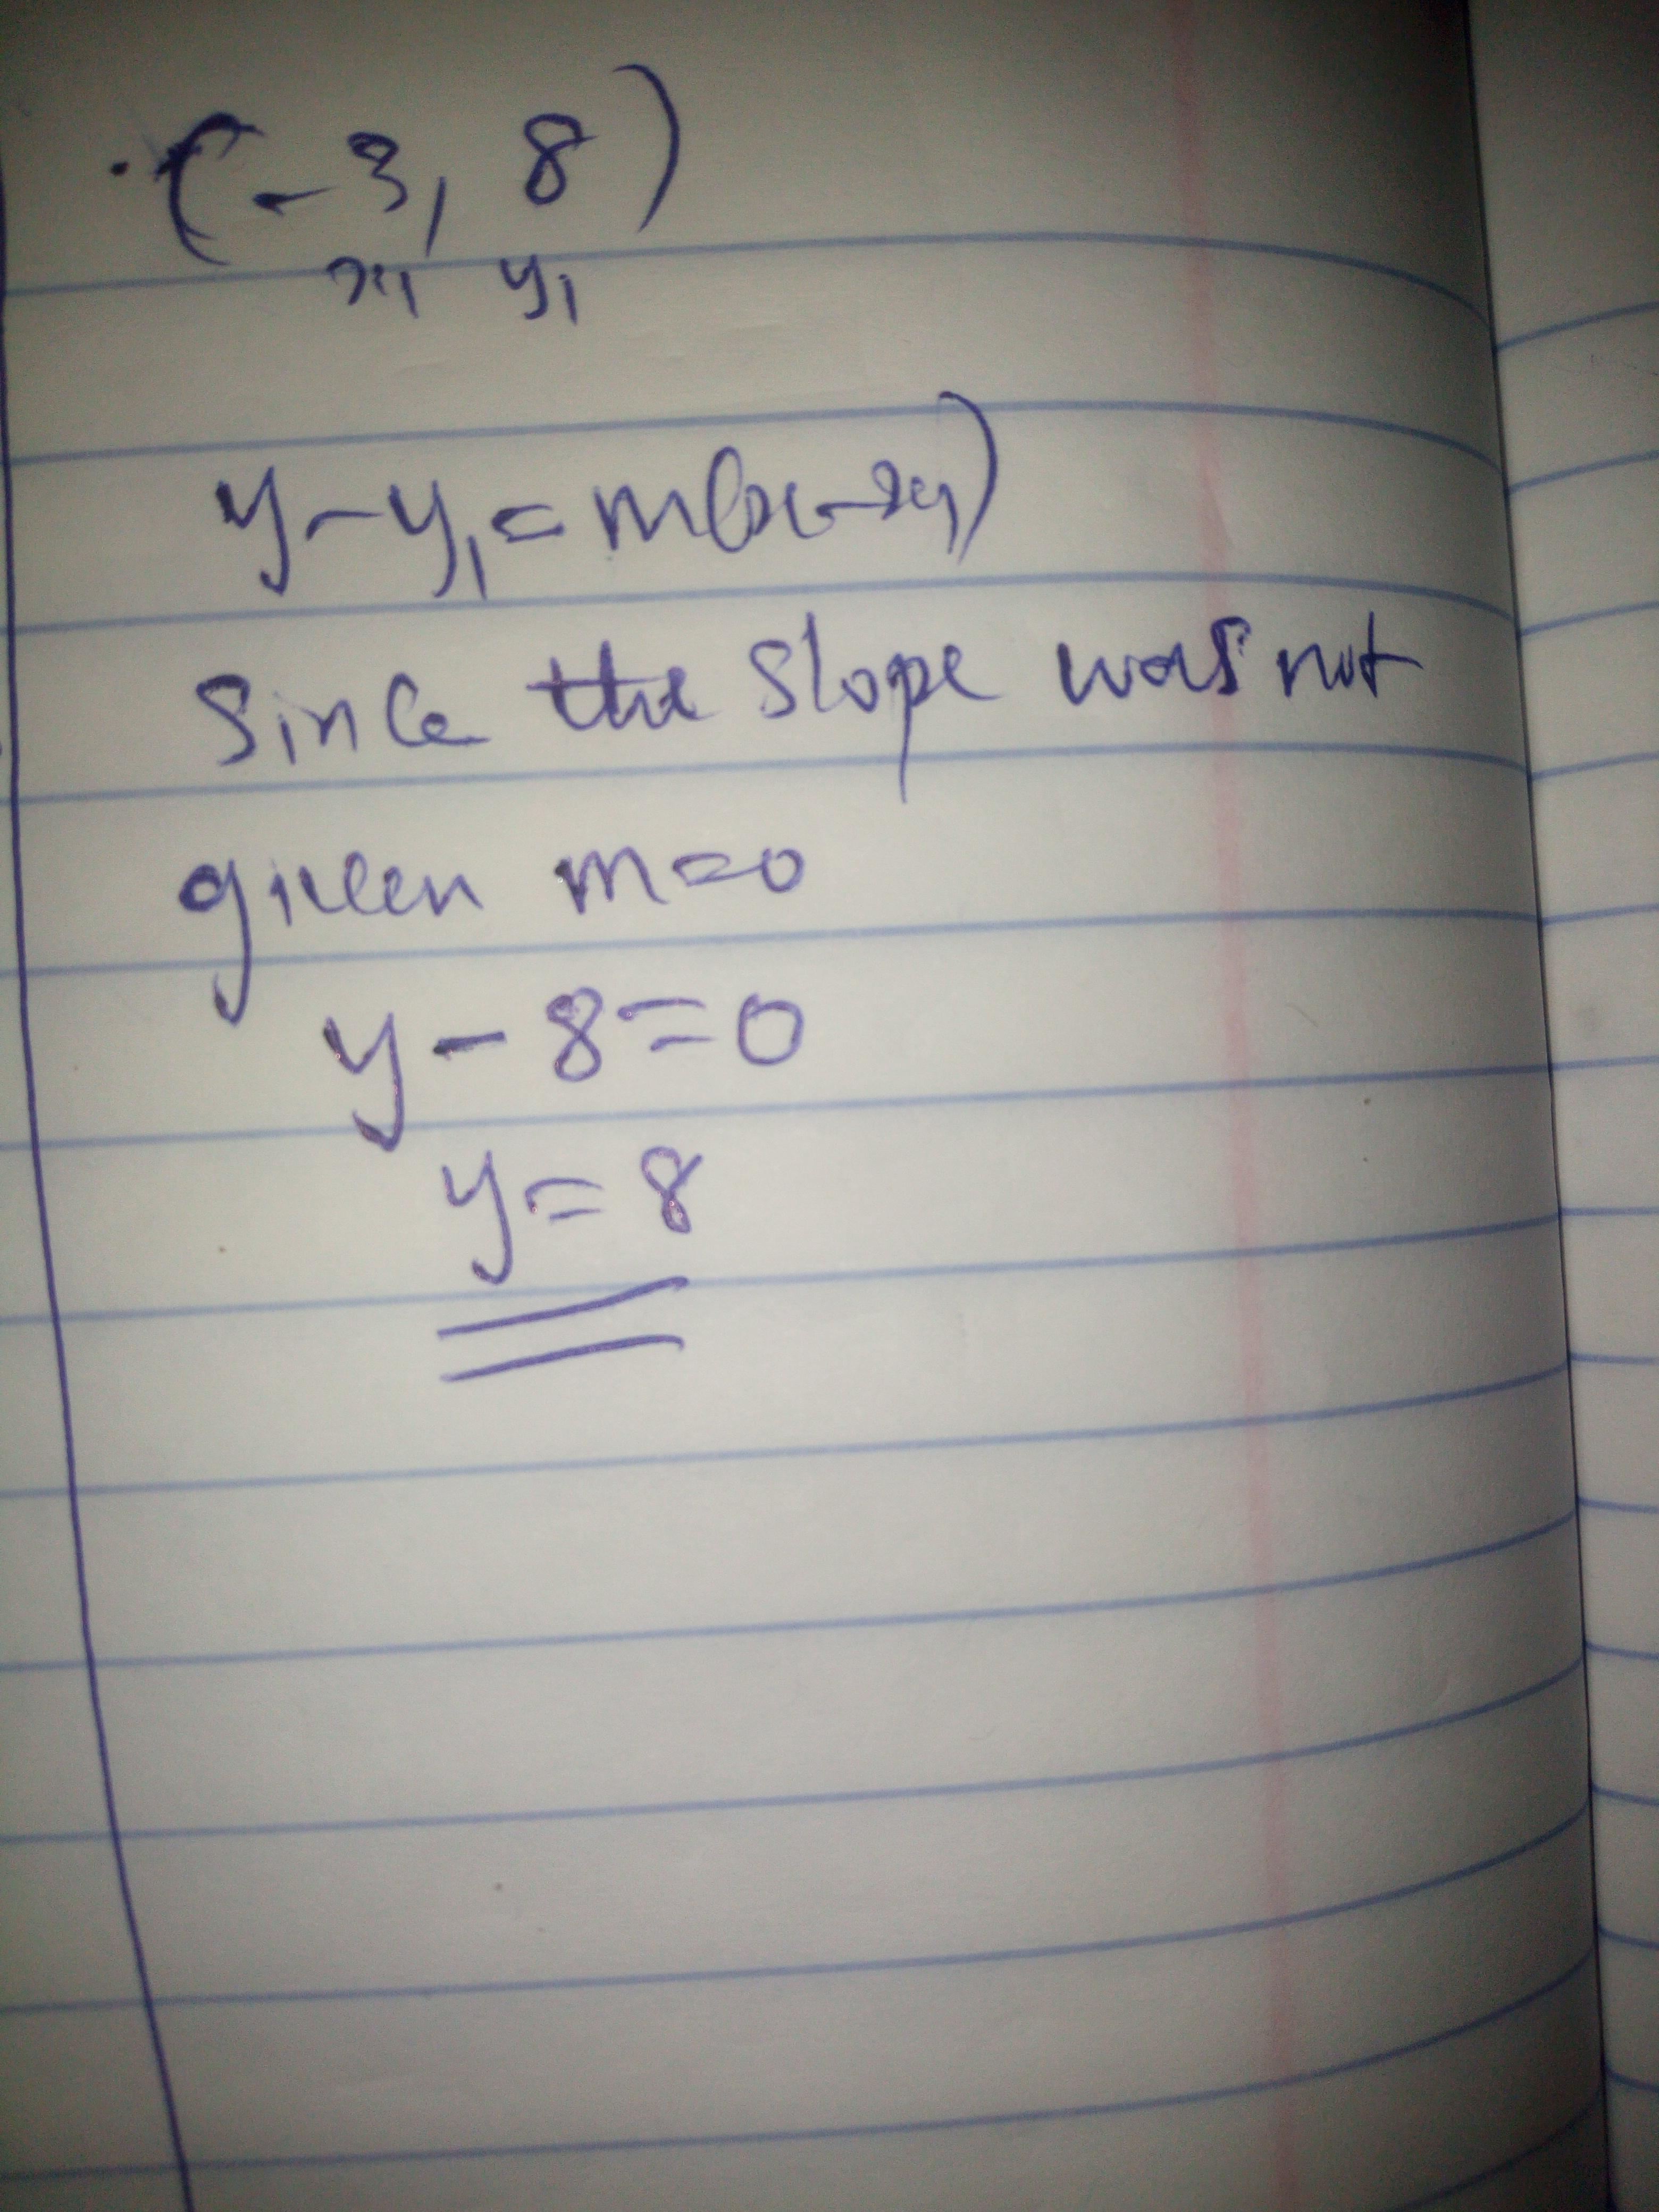 (-3, 8)
x₁ y₁
y-y₁=m(x-x₁)
Since the slope was not
given m=0
y-8=0
y=8